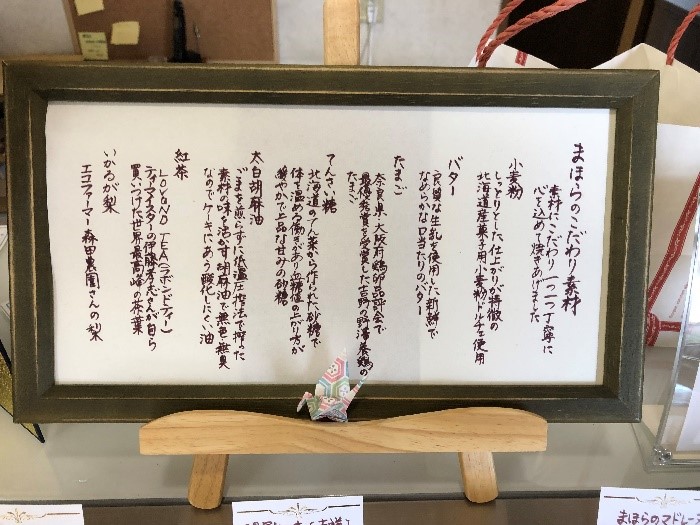 まほらのこだわり素材
素材にこだわり一つ一つ丁寧に
心を込めて焼きあげました
小麦粉
しっとりとした仕上がりが特徴の
北海道産菓子用小麦粉ドルチェ使用
バター
良質な生乳を使用した新鮮で
なめらかな口当たりのバター
たまご
奈良県・大阪府鶏卵品評会で
最優秀賞を受賞した吉野の野澤養鶏の
たまご
てんさい糖
北海道のてん菜から作られた砂糖で
体を温める働きがあり血糖値の上がり方が
緩やかで上品な甘みの砂糖
太白胡麻油
ごまを煎らずに低温圧搾法で搾った
素材の味を活かす胡麻油で無色無臭
なのでケーキにあう酸化しにくい油
紅茶
LOVOND TEA(ラボンドティー)
ティーマイスターの伊藤孝志さんが自ら
買いつけた世界最高峰の茶葉
いかるが梨
エコファーマー森田農園さんの梨
まほらのマドレーヌ